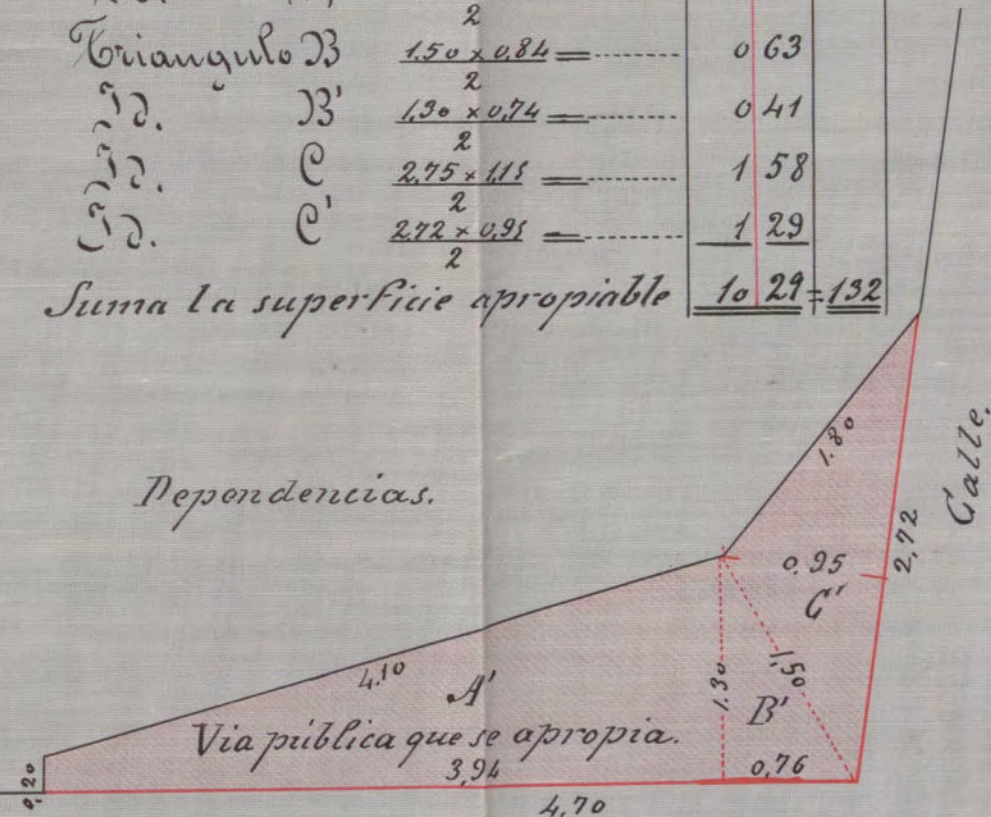 2
Triangulo B 1.50 x 0,84 = 0 63
2
Id. B' 1,30 x 0,74 = 0 41
2
Id. C 2,75 x 1,15 = 1 58
2
Id. C' 2,72 x 0,95 = 1 29
2
Suma la superficie apropiable 10 29 = 132
Dependencias.
1.80
Calle.
2,72
0.95
C'
4.10
A'
1.30
1.50
B'
Via pública que se apropia.
0,20
3,94
0,76
4,70